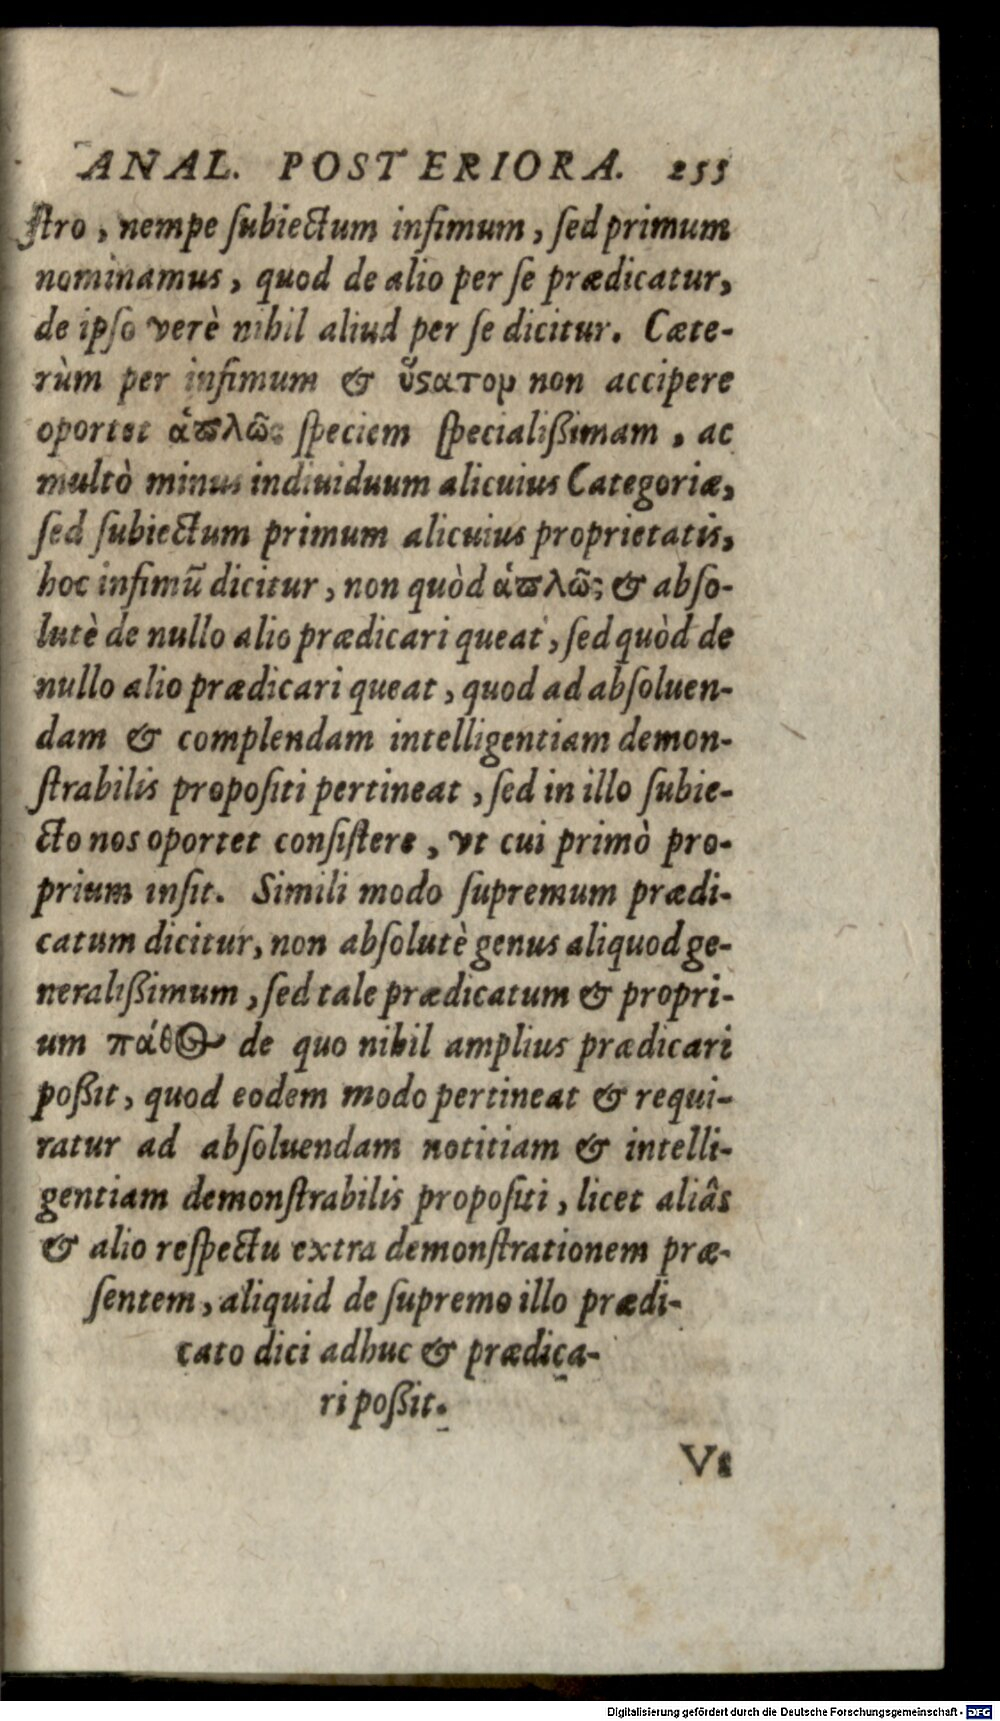 ANAL. POSTERIORA. 255
ſtro, nempe ſubiectum infimum, ſed primum
nominamus, quod de alio per ſe prædicatur,
de ipſo verè nihil aliud per ſe dicitur. Cæte-
rùm per infimum & ὕϛατομ non accipere
oportet ἁπλῶς ſpeciem ſpecialißimam, ac
multò minus indiuiduum alicuius Categoriæ,
ſed ſubiectum primum alicuius proprietatis,
hoc infimũ dicitur, non quòd ἁπλῶς & abſo-
lutè de nullo alio prædicari queat, ſed quòd de
nullo alio prædicari queat, quod ad abſoluen-
dam & complendam intelligentiam demon-
ſtrabilis propoſiti pertineat, ſed in illo ſubie-
cto nos oportet conſiſtere, vt cui primò pro-
prium inſit. Simili modo ſupremum prædi-
catum dicitur, non abſolutè genus aliquod ge-
neralißimum, ſed tale prædicatum & propri-
um πάθος de quo nihil amplius prædicari
poßit, quod eodem modo pertineat & requi-
ratur ad abſoluendam notitiam & intelli-
gentiam demonſtrabilis propoſiti, licet aliâs
& alio reſpectu extra demonſtrationem præ-
ſentem, aliquid de ſupremo illo prædi-
cato dici adhuc & prædica-
ri poßit.
Vt
Digitalisierung gefördert durch die Deutsche Forschungsgemeinschaft - DFG